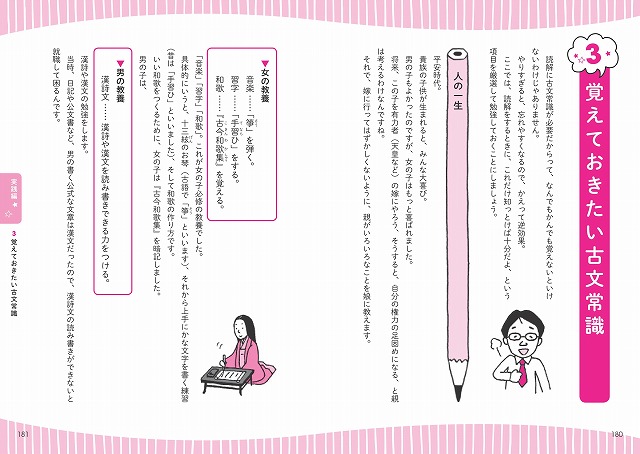 3
覚えておきたい古文常識
読解に古文常識が必要だからって、なんでもかんでも覚えないといけ
ないわけじゃありません。
やりすぎると、忘れやすくなるので、かえって逆効果。
ここでは、読解をするときに、これだけ知っとけば十分だよ、という
項目を厳選して勉強しておくことにしましょう。
人の一生
平安時代。
貴族の子供が生まれると、みんな大喜び。
男の子もよかったのですが、女の子はもっと喜ばれました。
将来、この子を有力者（天皇など）の嫁にやろう、そうすると、自分の権力の足固めになる、と親
は考えるわけなんですね。
それで、嫁に行ってはずかしくないように、親がいろいろなことを娘に教えます。
▼女の教養
音楽……「箏」を弾く。
習字……「手習ひ」をする。
和歌……『古今和歌集』を覚える。
「音楽」「習字」「和歌」。これが女の子必修の教養でした。
具体的にいうと、十三絃のお琴（古語で「箏」といいます）、それから上手にかな文字を書く練習
（昔は「手習ひ」といいました）、そして和歌の作り方です。
いい和歌をつくるために、女の子は『古今和歌集』を暗記しました。
男の子は、
▼男の教養
漢詩文……漢詩や漢文を読み書きできる力をつける。
漢詩や漢文の勉強をします。
当時、日記や公文書など、男の書く公式な文章は漢文だったので、漢詩文の読み書きができないと
就職して困るんです。
実践編
3 覚えておきたい古文常識
180
181